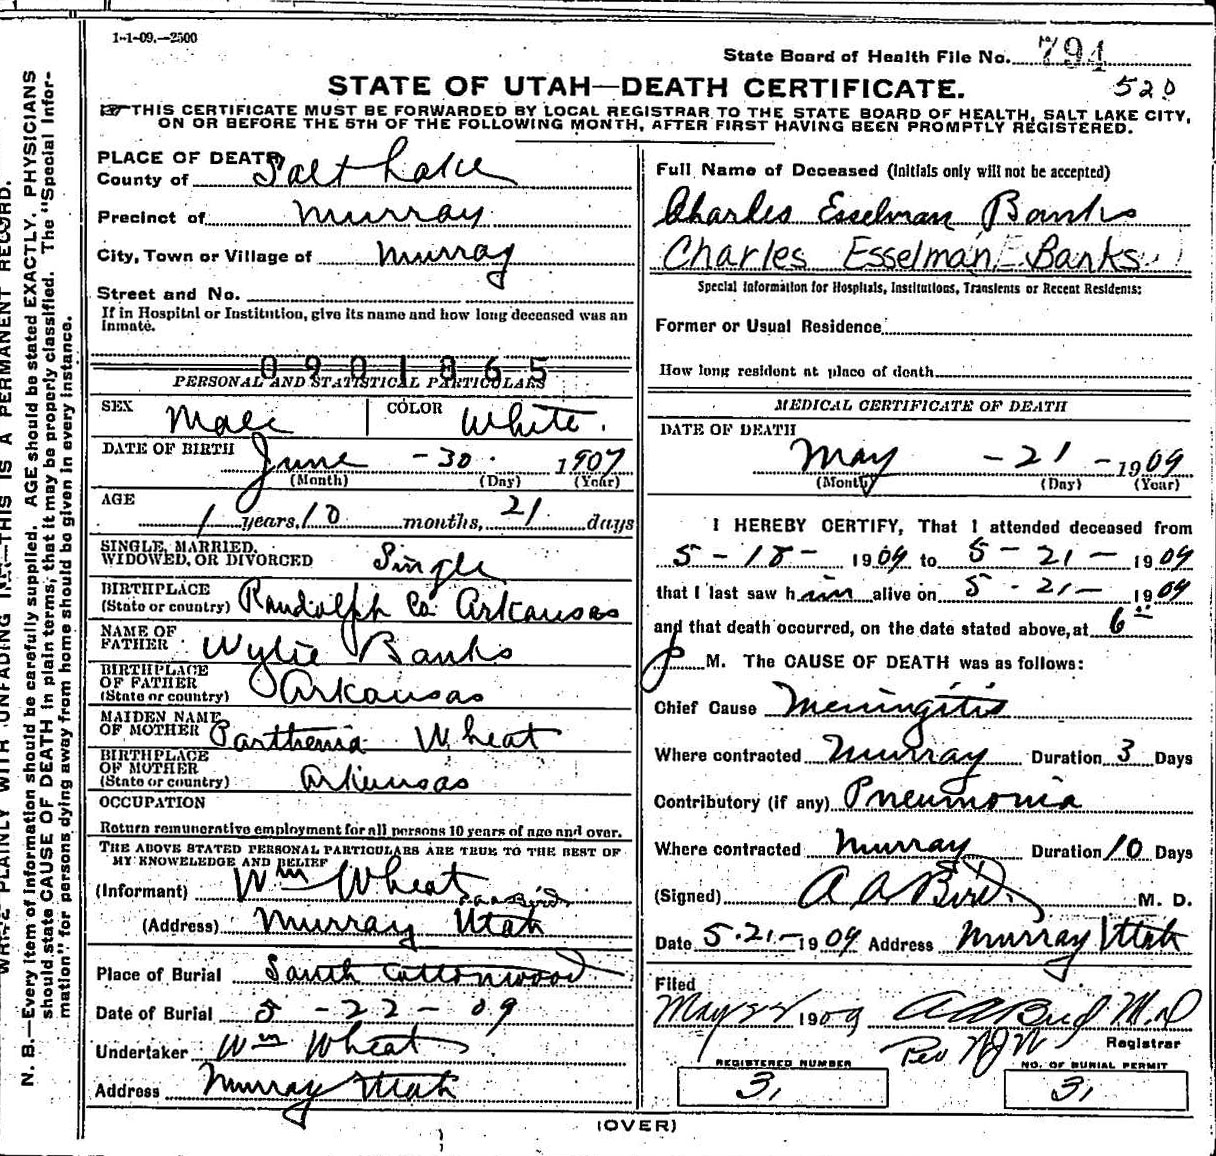 1-1-09.—2500
State Board of Health File No. 794
520
STATE OF UTAH—DEATH CERTIFICATE.
THIS CERTIFICATE MUST BE FORWARDED BY LOCAL REGISTRAR TO THE STATE BOARD OF HEALTH, SALT LAKE CITY,
ON OR BEFORE THE 5TH OF THE FOLLOWING MONTH, AFTER FIRST HAVING BEEN PROMPTLY REGISTERED.
PLACE OF DEATH
County of Salt Lake
Precinct of Murray
City, Town or Village of Murray
Street and No.
If in Hospital or Institution, give its name and how long deceased was an
Inmate.
0901865
PERSONAL AND STATISTICAL PARTICULARS
SEX Male COLOR White.
DATE OF BIRTH June - 30 - 1907
(Month) (Day) (Year)
AGE
1 years, 10 months, 21 days
SINGLE, MARRIED,
WIDOWED, OR DIVORCED Single
BIRTHPLACE
(State or country) Randolph Co. Arkansas
NAME OF
FATHER Wylie Banks
BIRTHPLACE
OF FATHER
(State or country) Arkansas
MAIDEN NAME
OF MOTHER Parthenia Wheat
BIRTHPLACE
OF MOTHER
(State or country) Arkansas
OCCUPATION
Return remunerative employment for all persons 10 years of age and over.
THE ABOVE STATED PERSONAL PARTICULARS ARE TRUE TO THE BEST OF
MY KNOWELEDGE AND BELIEF
(Informant) Wm Wheat
(Address) Murray Utah
Place of Burial South Cottonwood
Date of Burial 5 - 22 - 09
Undertaker Wm Wheat
Address Murray Utah
Full Name of Deceased (Initials only will not be accepted)
Charles Esselman Banks
Charles Esselman Banks
Special Information for Hospitals, Institutions, Transients or Recent Residents:
Former or Usual Residence
How long resident at place of death
MEDICAL CERTIFICATE OF DEATH
DATE OF DEATH
May - 21 - 1909
(Month) (Day) (Year)
I HEREBY CERTIFY, That I attended deceased from
5 - 18 - 1909 to 5 - 21 - 1909
that I last saw him alive on 5 - 21 - 1909
and that death occurred, on the date stated above, at 6
p M. The CAUSE OF DEATH was as follows:
Chief Cause Meningitis
Where contracted Murray Duration 3 Days
Contributory (if any) Pneumonia
Where contracted Murray Duration 10 Days
(Signed) A A Bird M. D.
Date 5-21-1909 Address Murray Utah
Filed
May 22 1909 A A Bird M.D
Registrar
Per NJW
REGISTERED NUMBER
3,
NO. OF BURIAL PERMIT
3,
(OVER)
N. B.—Every item of information should be carefully supplied. AGE should be stated EXACTLY. PHYSICIANS
should state CAUSE OF DEATH in plain terms, that it may be properly classified. The "Special Infor-
mation" for persons dying away from home should be given in every instance.